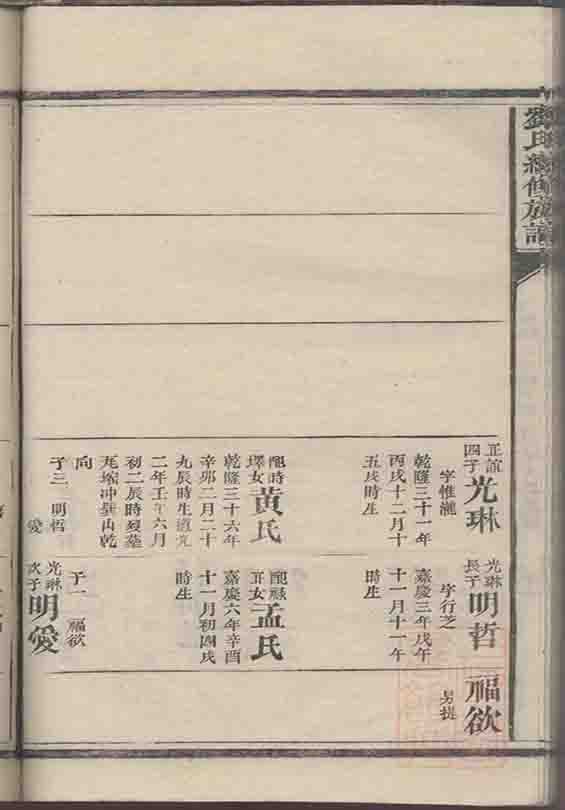 劉氏續修族譜
正誼四子光琳
字惟瀧
乾隆三十一年
丙戌十二月十
五戌時生
配時璍女黃氏
乾隆三十六年
辛卯二月二十
九辰時生道光
二年壬午六月
初二辰時歿墓
冲巽山乾
向
子三 明哲
愛
光琳長子明哲
字行芝
嘉慶三年戊午
十一月十一午
時生
女孟氏
嘉慶六年辛酉
十一月初四戌
時生
子一 福欲
光琳次子明愛
福欲
另提